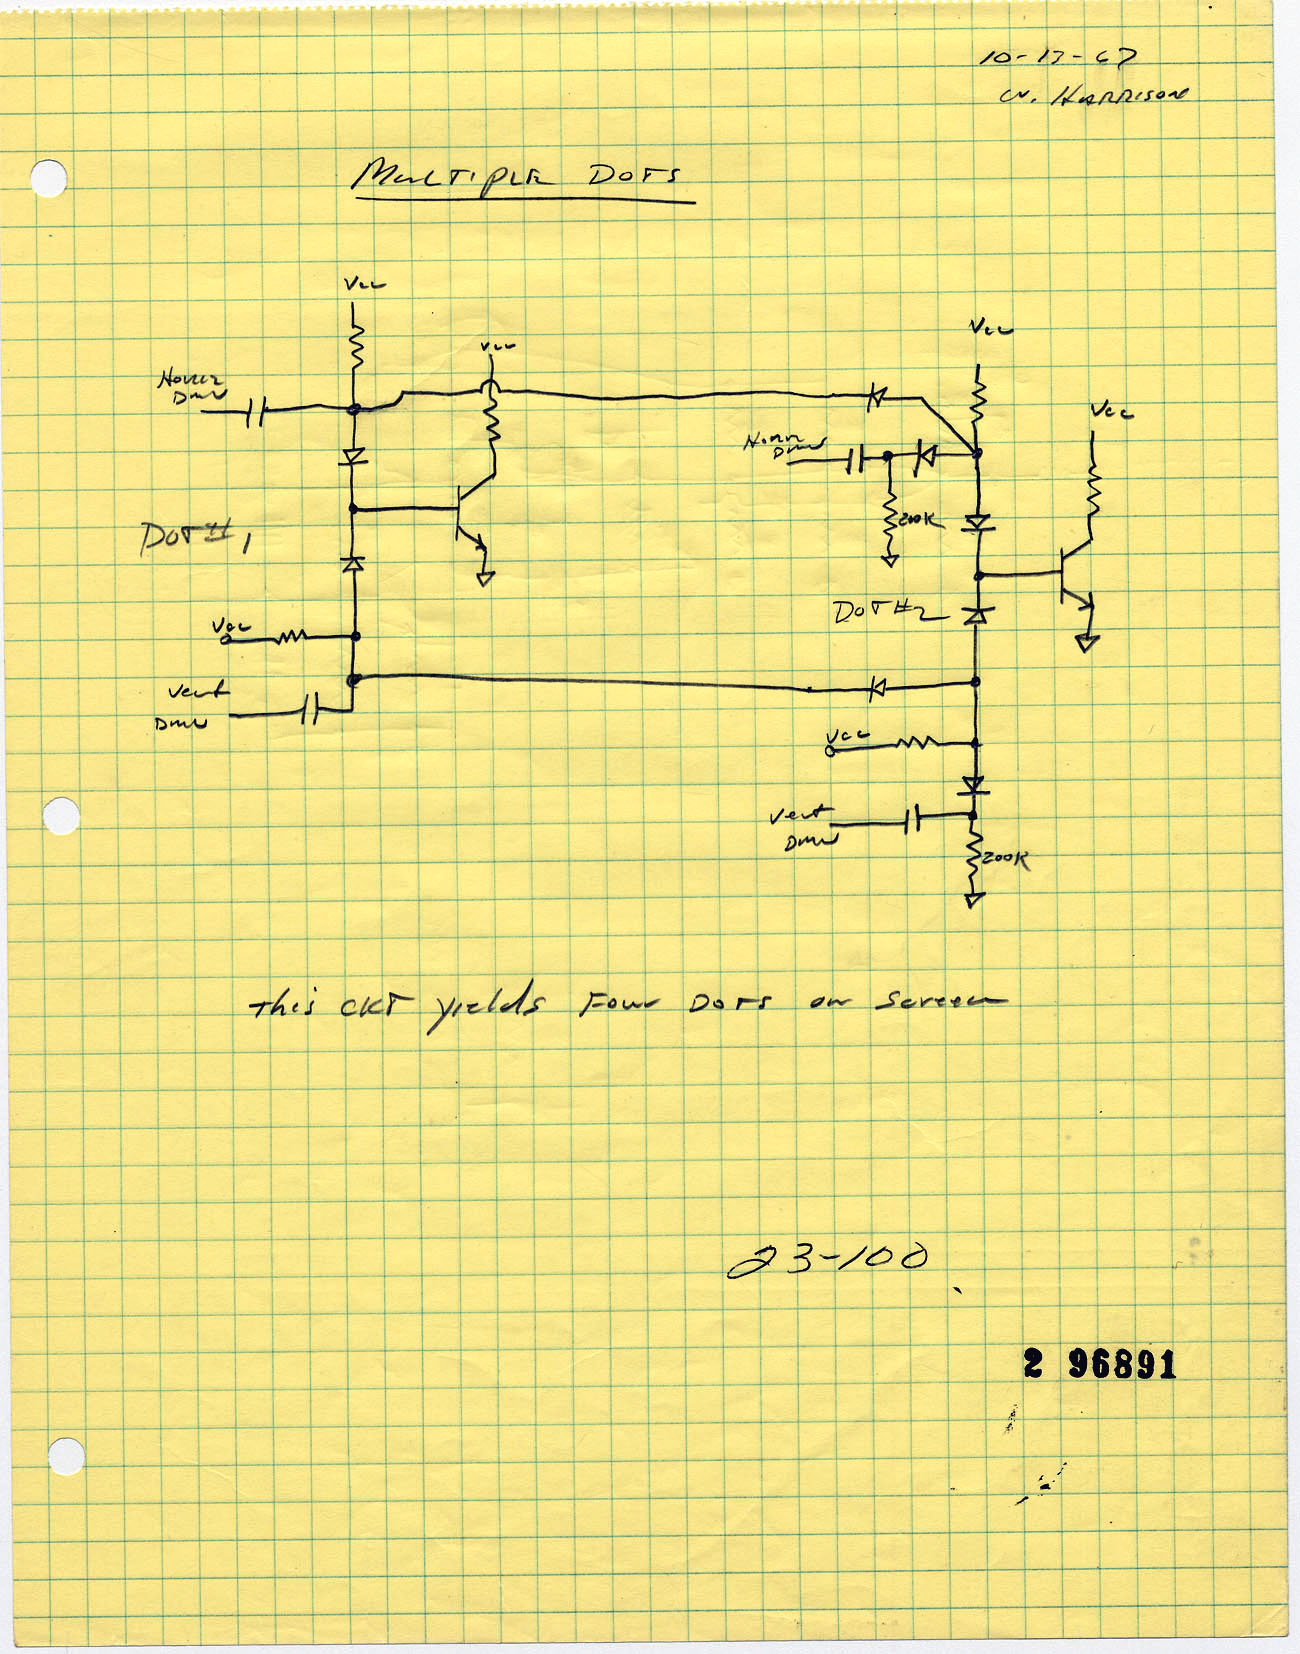 10-13-67
W. HARRISON
MULTIPLE DOTS
Vcc
Vcc
Vcc
Horiz
Vcc
Horiz
200K
DOT #1
DOT #2
Vcc
Vert
Vcc
Vert
200K
This CKT yields Four DOTS on screen
23-100
2 96891